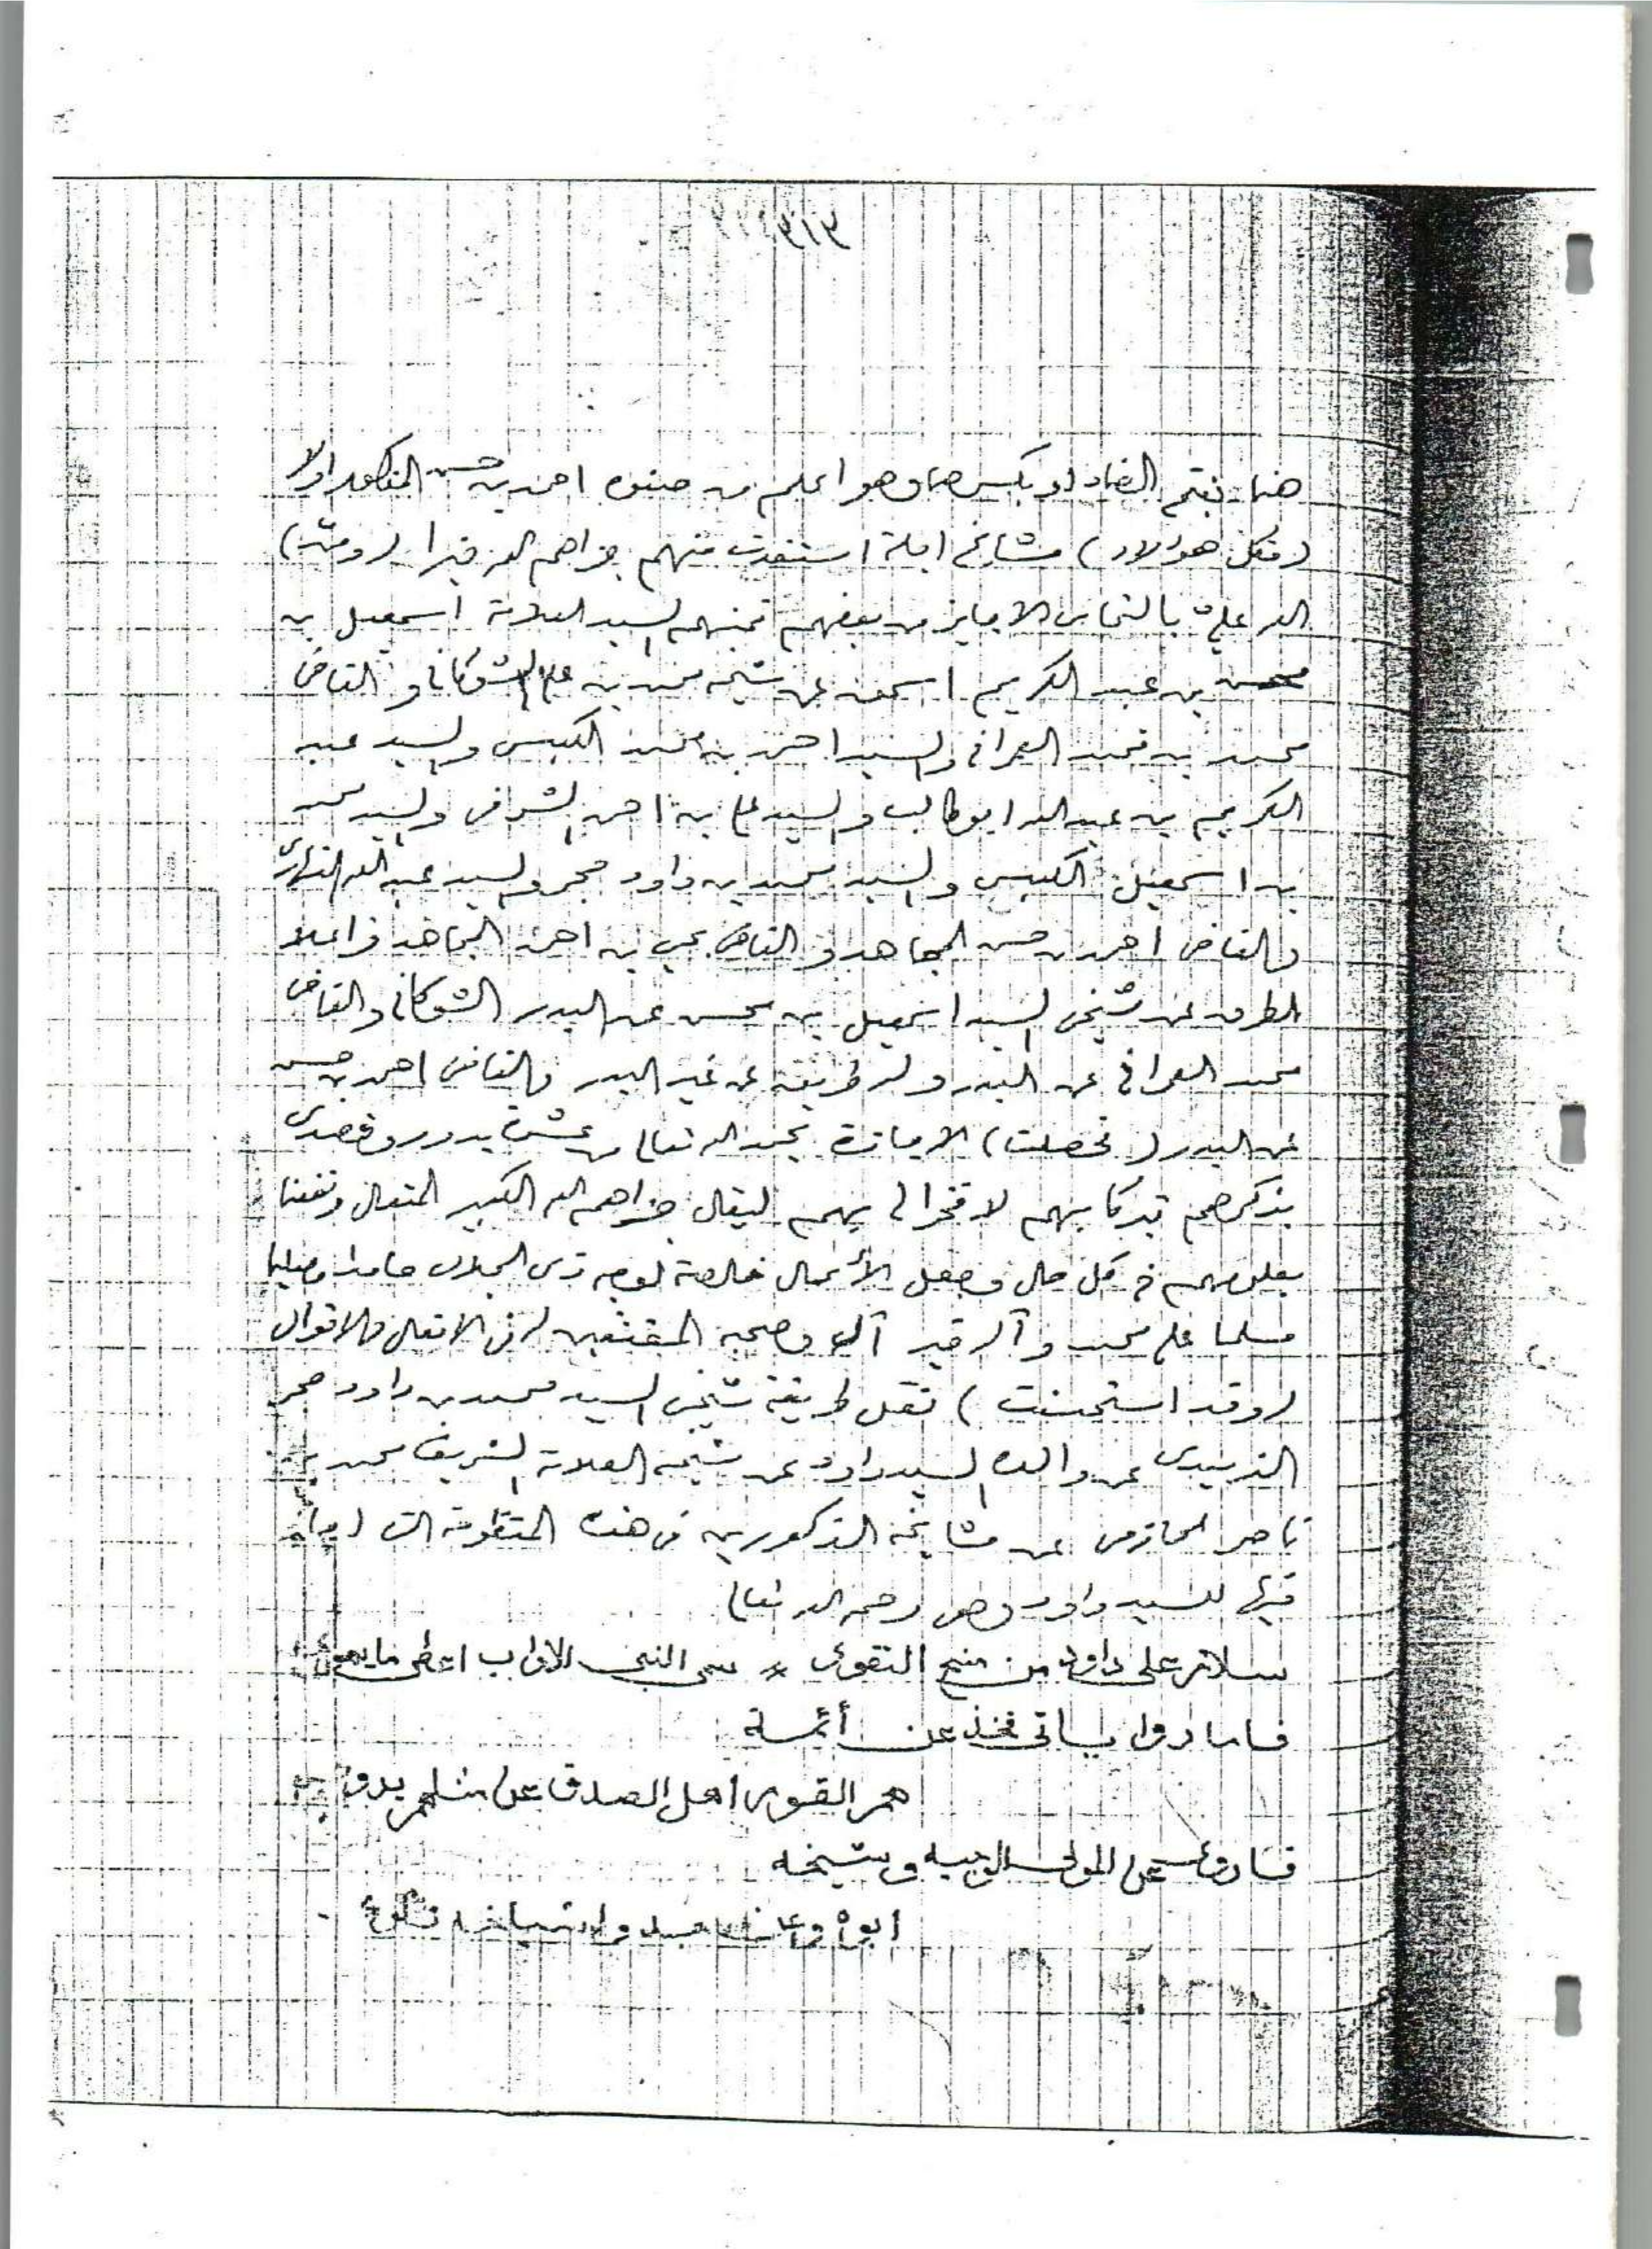 ٣١٣
هنا بفتح الضاد لا بكسرها وهو اعلم من صنوه احمد بن حسن المذكور اولا
(فكل هؤلاء) مشايخ اجلة استفدت منهم جزاهم الله خيرا (ومنّ)
الله عليّ بالتماس الاجايز من بعضهم فمنهم السيد العلامة اسمعيل بن
محسن بن عبد الكريم اسحق عن شيخه محمد بن علي الشوكاني والقاضي
محمد بن محمد العمراني والسيد احمد بن محمد الكبسي والسيد عبد
الكريم بن عبد الله ابو طالب والسيد علي بن احمد الشرفي والسيد محمد
بن اسمعيل الكبسي والسيد محمد بن داود حجر والسيد عبد الله
والقاضي احمد بن حسن المجاهد والقاضي يحيى بن احمد المجاهد واعلا
الطرق عن شيخي السيد اسمعيل بن محسن عن البدر الشوكاني والقاضي
محمد العمراني عن البدر وله طريقة عن غير البدر والقاضي احمد بن حسن
عن البدر (فحصلت) الاجازة بحمد الله تعالى من عشرة بدور وقصدي
بذكرهم تبركا بهم لا فخرا لي بهم ليقال جزاهم الله الكبير المتعال ونفعنا
بعلومهم في كل حال وجعل الأعمال خالصة لوجه ذي الجلال حامدا ومصليا
مسلما على محمد وآله خير آل وصحبه المقتفين له في الافعال والاقوال
(وقد استحسنت) نقل طريقة شيخي السيد محمد بن داود حجر
الزبيدي عن والده السيد داود عن شيخه العلامة الشريف محمد بن
ناصر الحازمي عن مشايخه المذكورين في هذه المنظومة التي اجاز
فيها للسيد داود وهي رحمه الله تعالى
سلام على داود من منح التقوى * سمي النبي الاواب اعطي ما يهوى
فاما روايـاتي فخذ عن أئمـة
هم القوم اهل الصدق عن مثلهم يروى
فـارويـه عن المولى الوجيه وشيخه